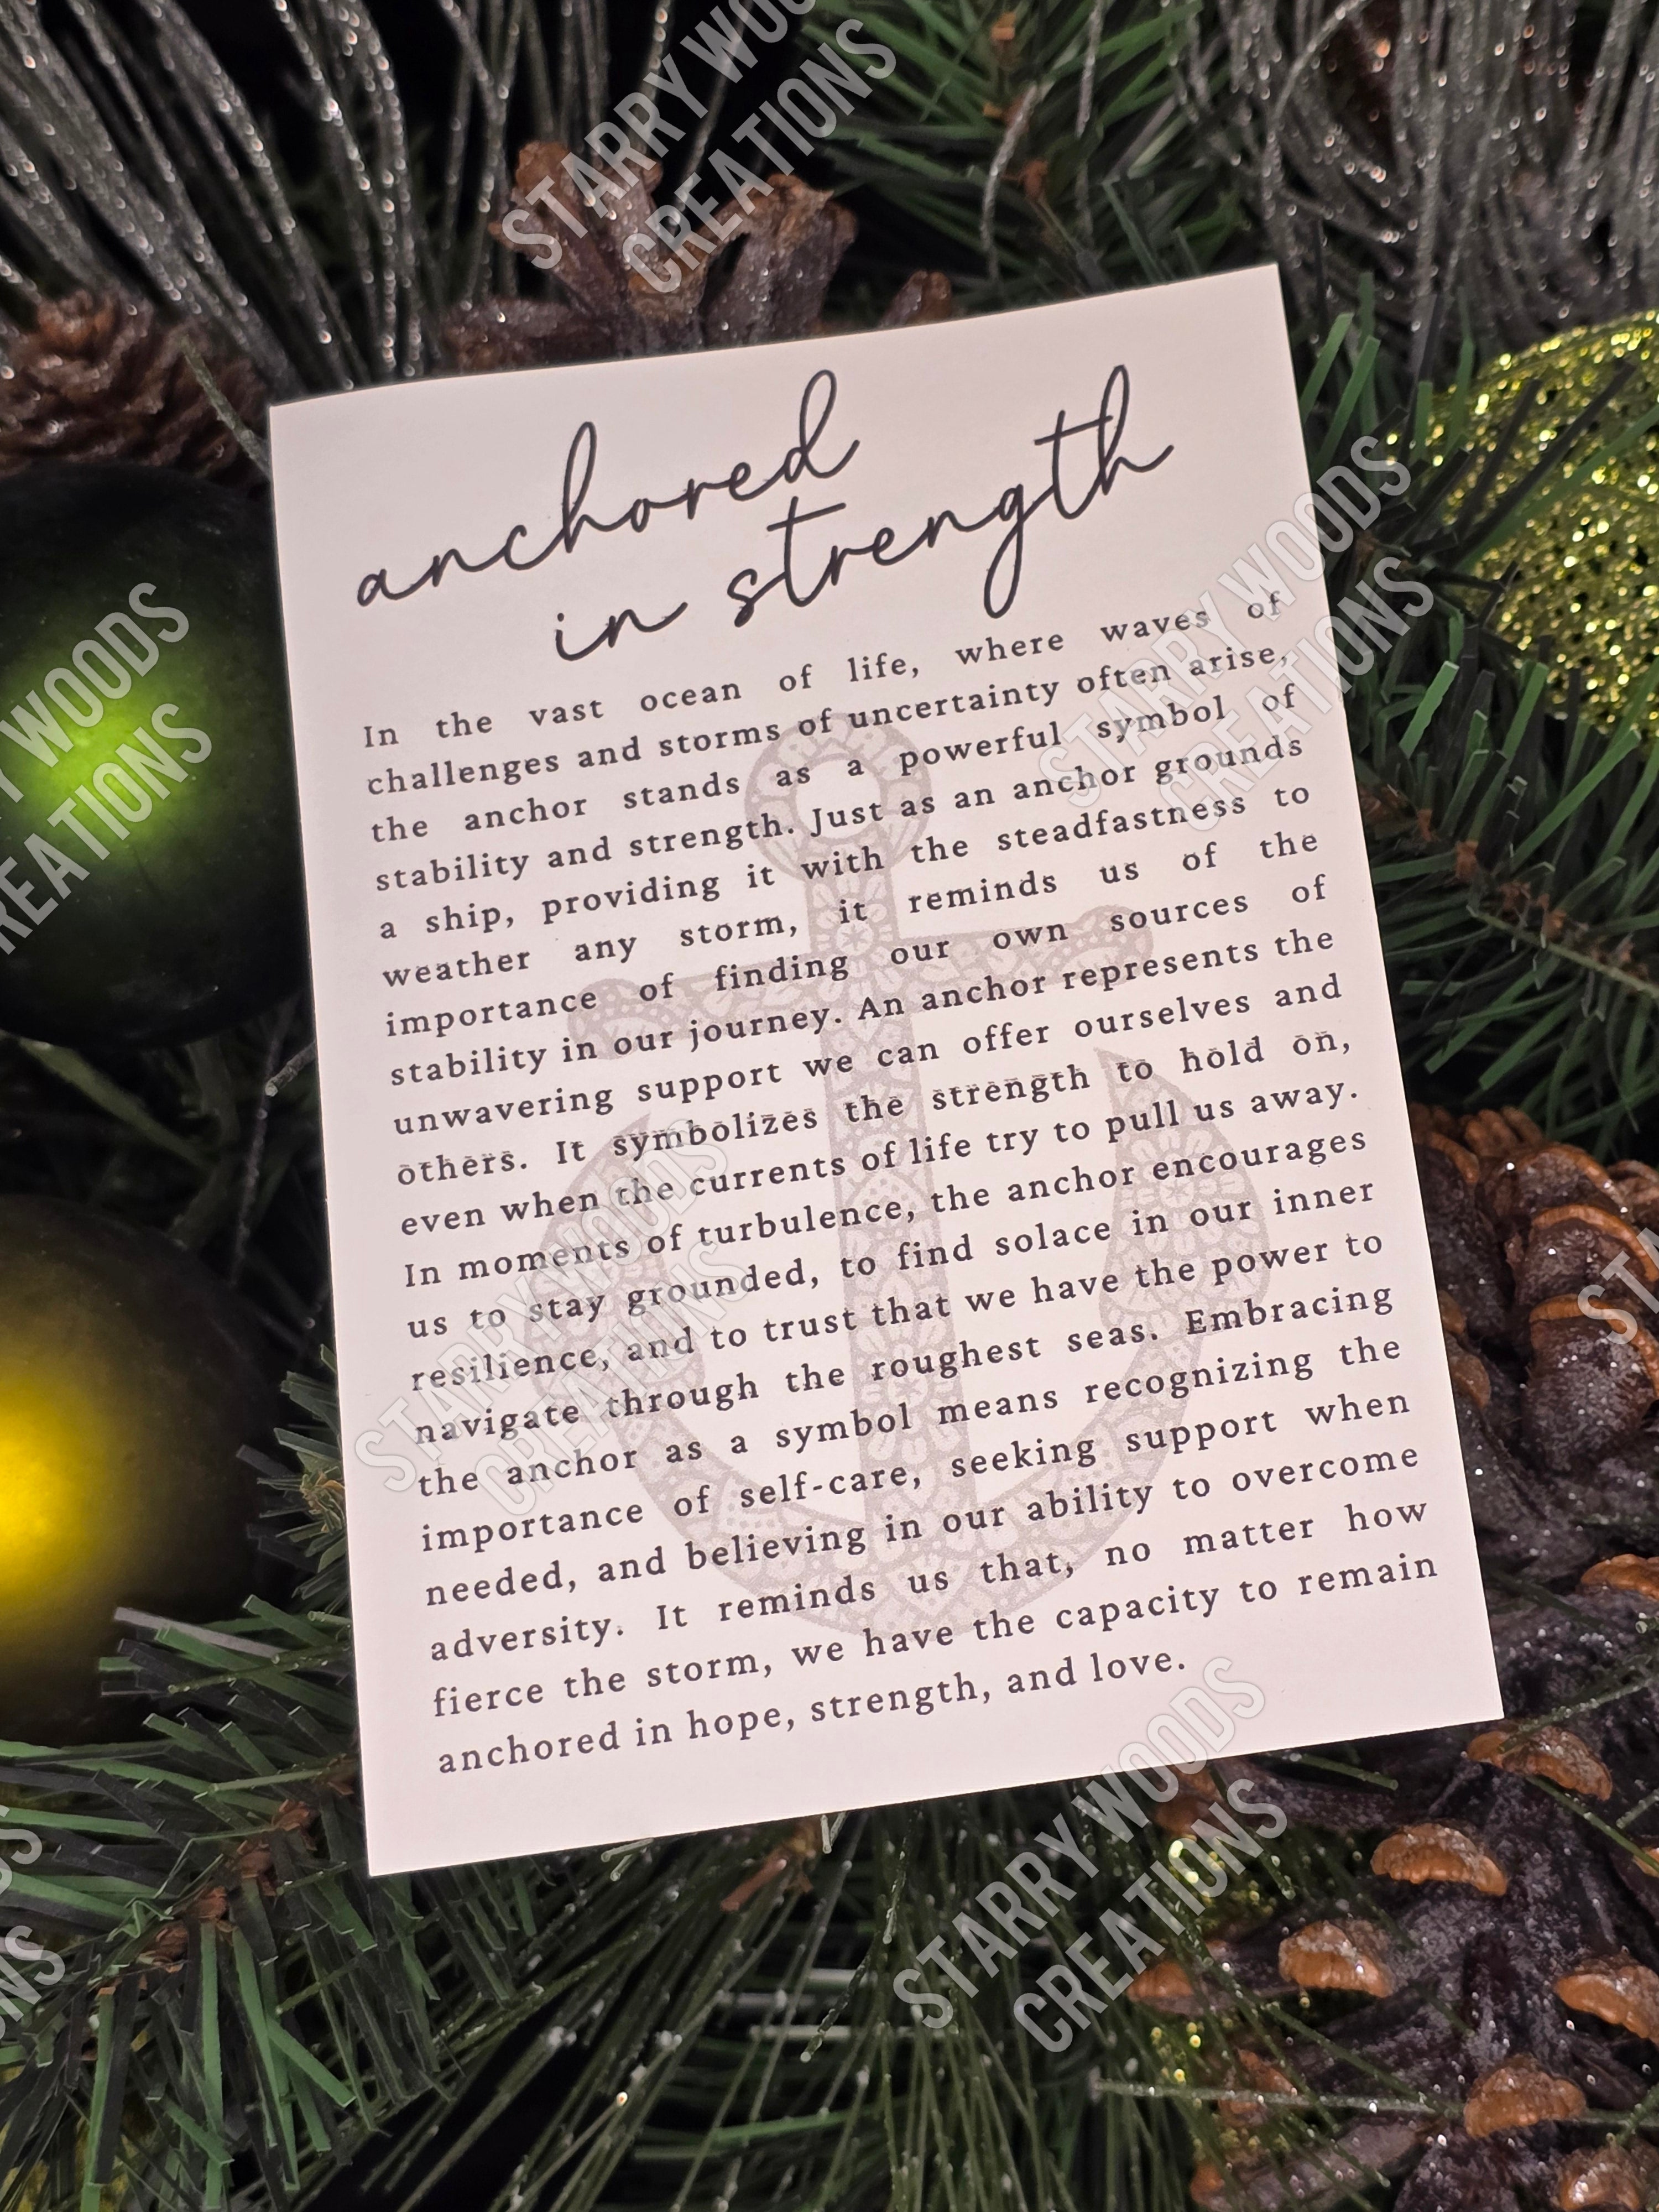 STARRY WOODS
CREATIONS
anchored
in strength
In the vast ocean of life, where waves of
challenges and storms of uncertainty often arise,
the anchor stands as a powerful symbol of
stability and strength. Just as an anchor grounds
a ship, providing it with the steadfastness to
weather any storm, it reminds us of the
importance of finding our own sources of
stability in our journey. An anchor represents the
unwavering support we can offer ourselves and
others. It symbolizes the strength to hold on,
even when the currents of life try to pull us away.
In moments of turbulence, the anchor encourages
us to stay grounded, to find solace in our inner
resilience, and to trust that we have the power to
navigate through the roughest seas. Embracing
the anchor as a symbol means recognizing the
importance of self-care, seeking support when
needed, and believing in our ability to overcome
adversity. It reminds us that, no matter how
fierce the storm, we have the capacity to remain
anchored in hope, strength, and love.
STARRY WOODS
CREATIONS
WOODS
CREATIONS
STARRY WOODS
CREATIONS
STARRY WOODS
CREATIONS